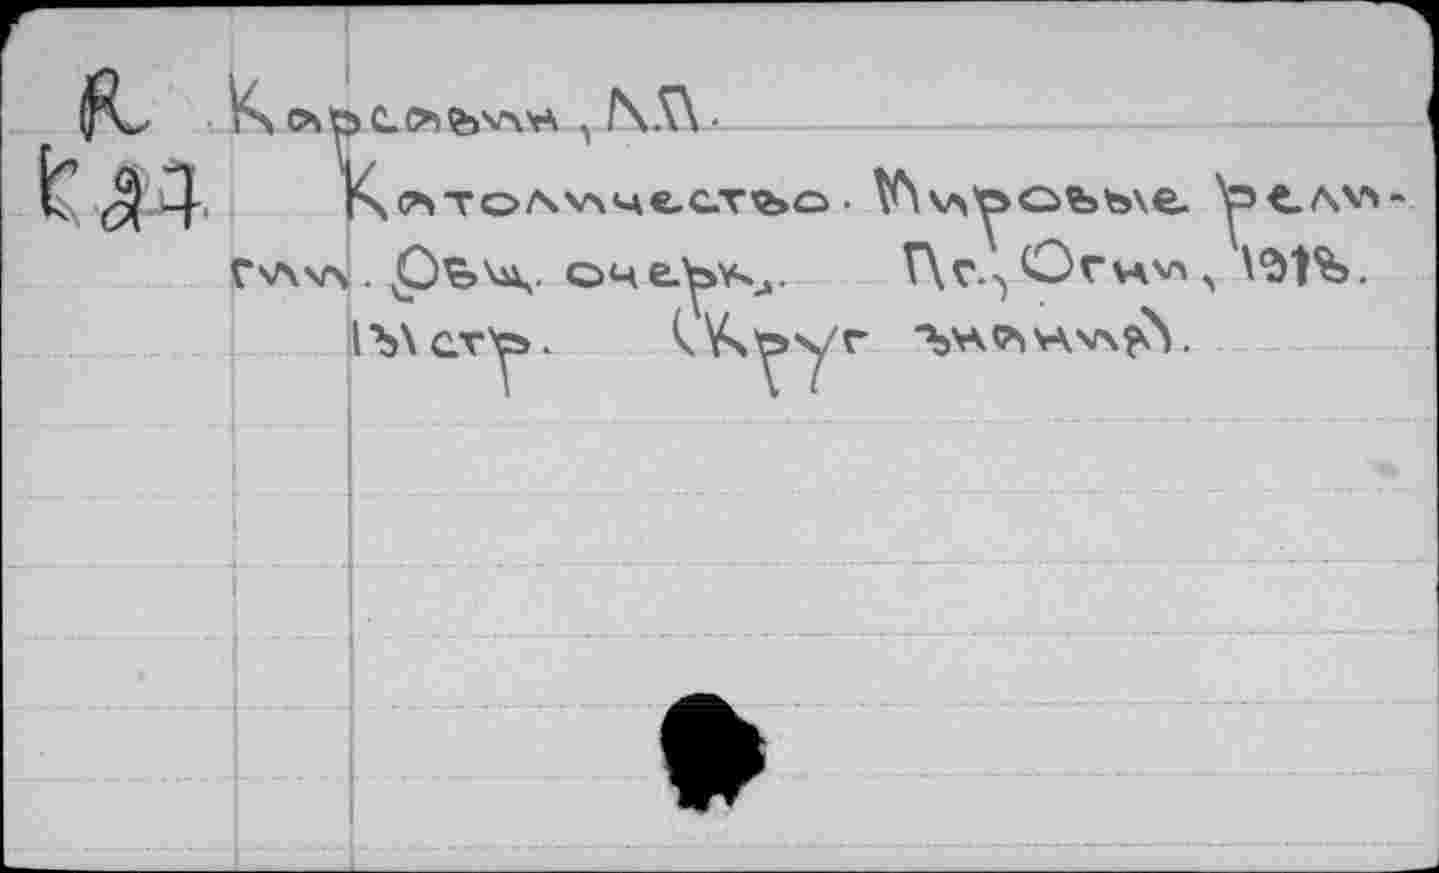 Карсавин, Л.П.
Католичество. Мировые рели-
гии. Общ. очерк. Пг., Огни, 1918.
131 стр. (Круг знания).